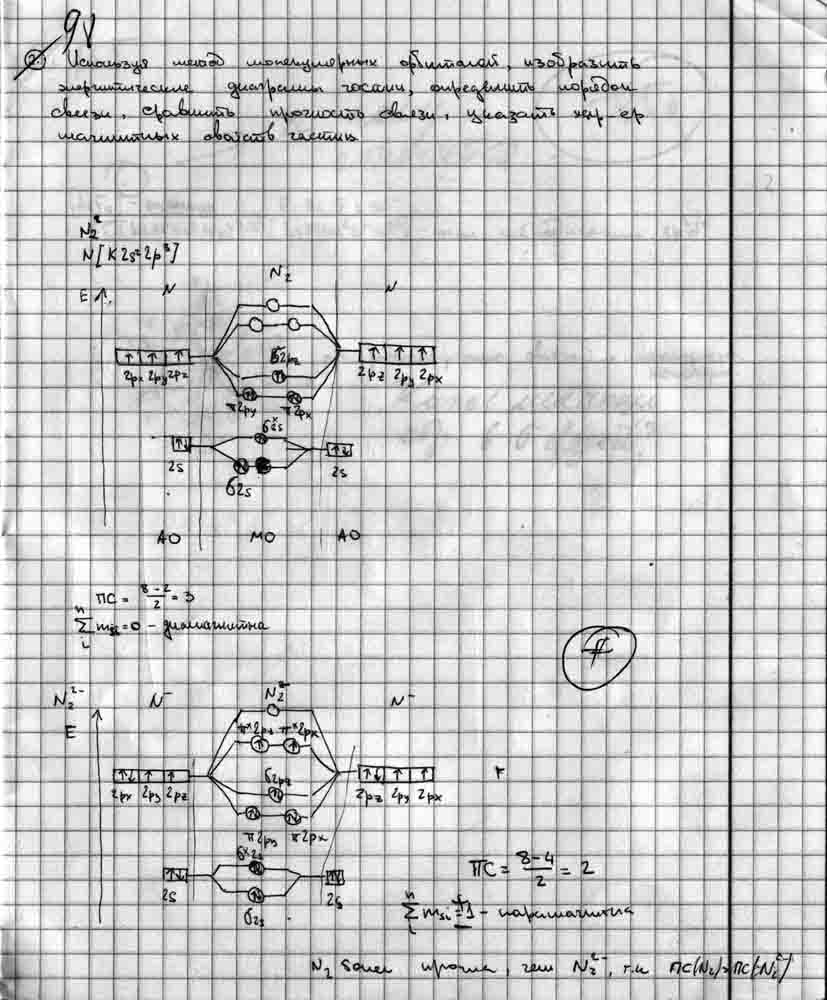 9V
2. Используя метод молекулярных орбиталей, изобразить
энергитические диаграммы частиц, определить порядок
связи, сравнить прочность связи, указать хар-ер
магнитных свойств частиц
N₂
N[K2s²2p³]
E N N₂ N
σ2pz
2px 2py 2pz 2pz 2py 2px
π2py π2px
σˣ2s
2s 2s
σ2s
АО МО АО
ПС = 8-2/2 = 3
n ∑ i msi = 0 - диамагнитна
N₂²⁻ N⁻ N₂²⁻ N⁻
E
πˣ2py πˣ2px
σ2pz
2px 2py 2pz 2pz 2py 2px
π2py π2px
σˣ2s
2s 2s
σ2s
ПС = 8-4/2 = 2
n ∑ i msi = 1 - парамагнитна
N₂ более прочна, чем N₂²⁻, т.к ПС(N₂)>ПС(N₂²⁻)